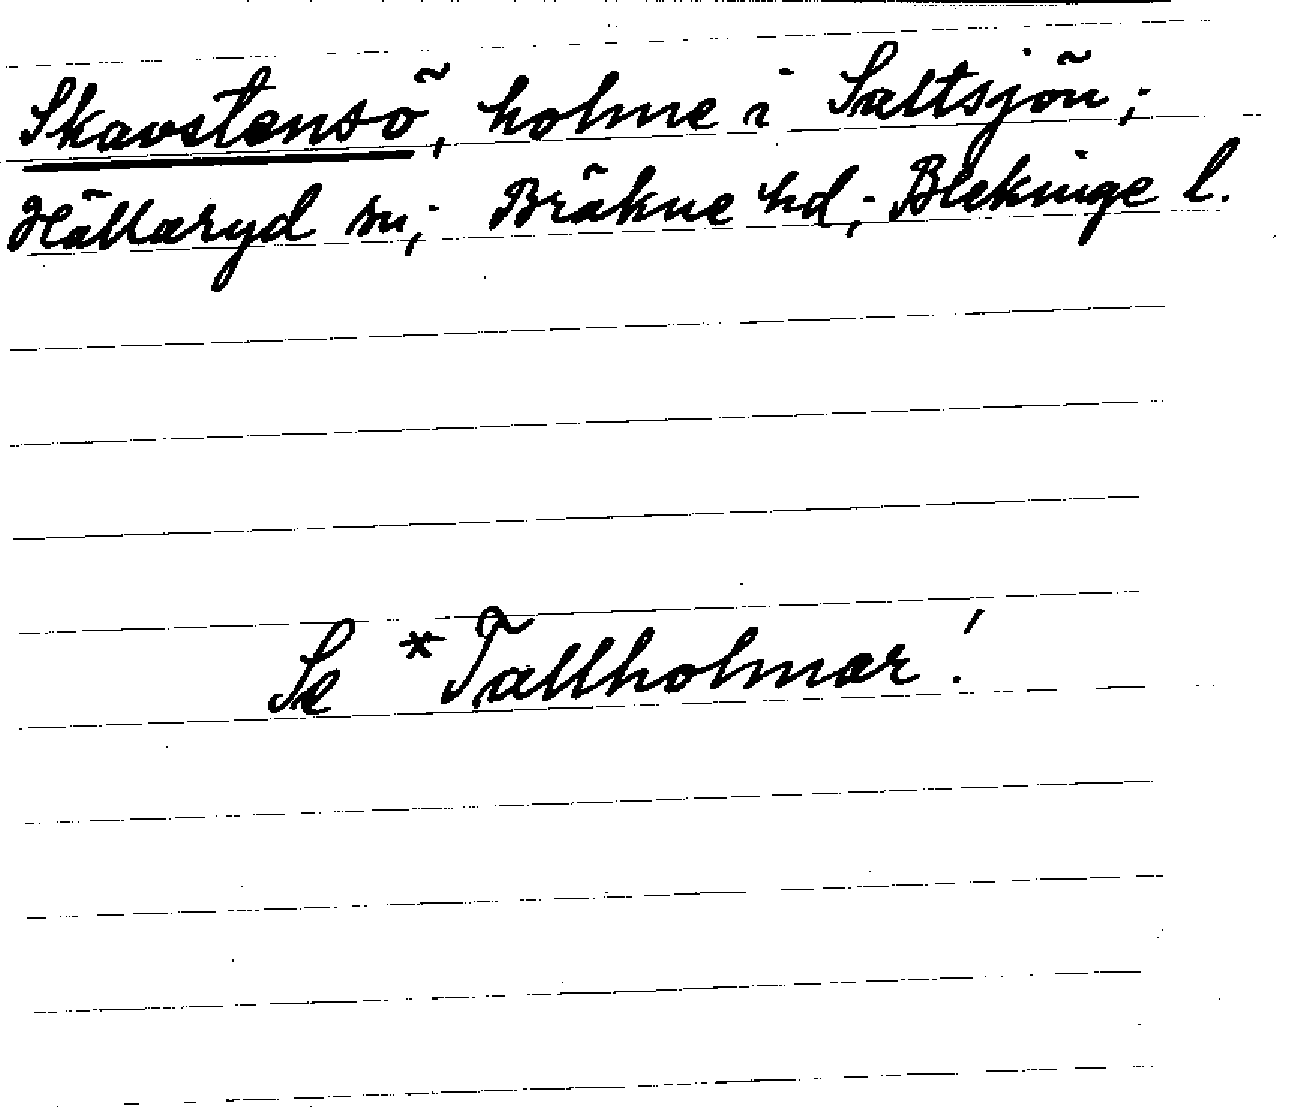 Skavstensö, holme i Saltsjön;
Hällaryd sn; Bräkne hd; Blekinge l.
Se *Tallholmar!